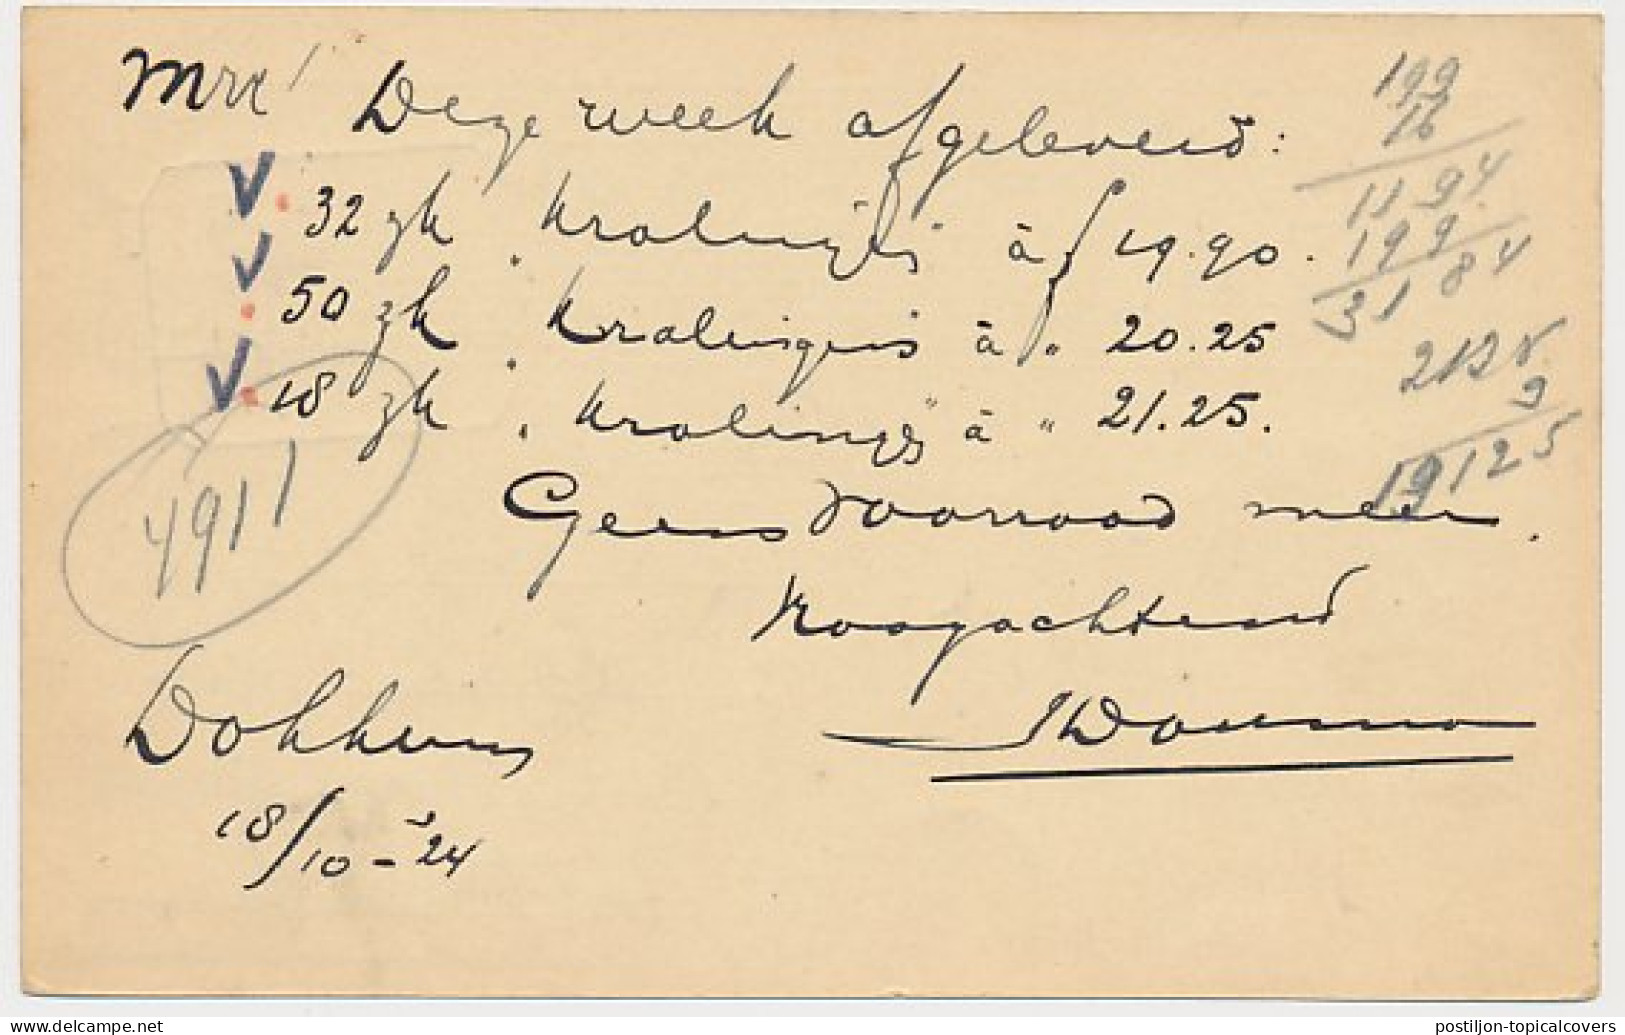 Mrr! Deze week afgeleverd:
V. 32 zk. Kralingers à f 19.90.
V. 50 zk. Kralingers à " 20.25
V. 18 zk. Kraling" à " 21.25.
Geen Voorraad meer.
Hoogachtend
Douma
Dokkum
18/10-'24
4911
199
16
1194
199
3184
2125
9
19125
postiljon-topicalcovers
www.delcampe.net